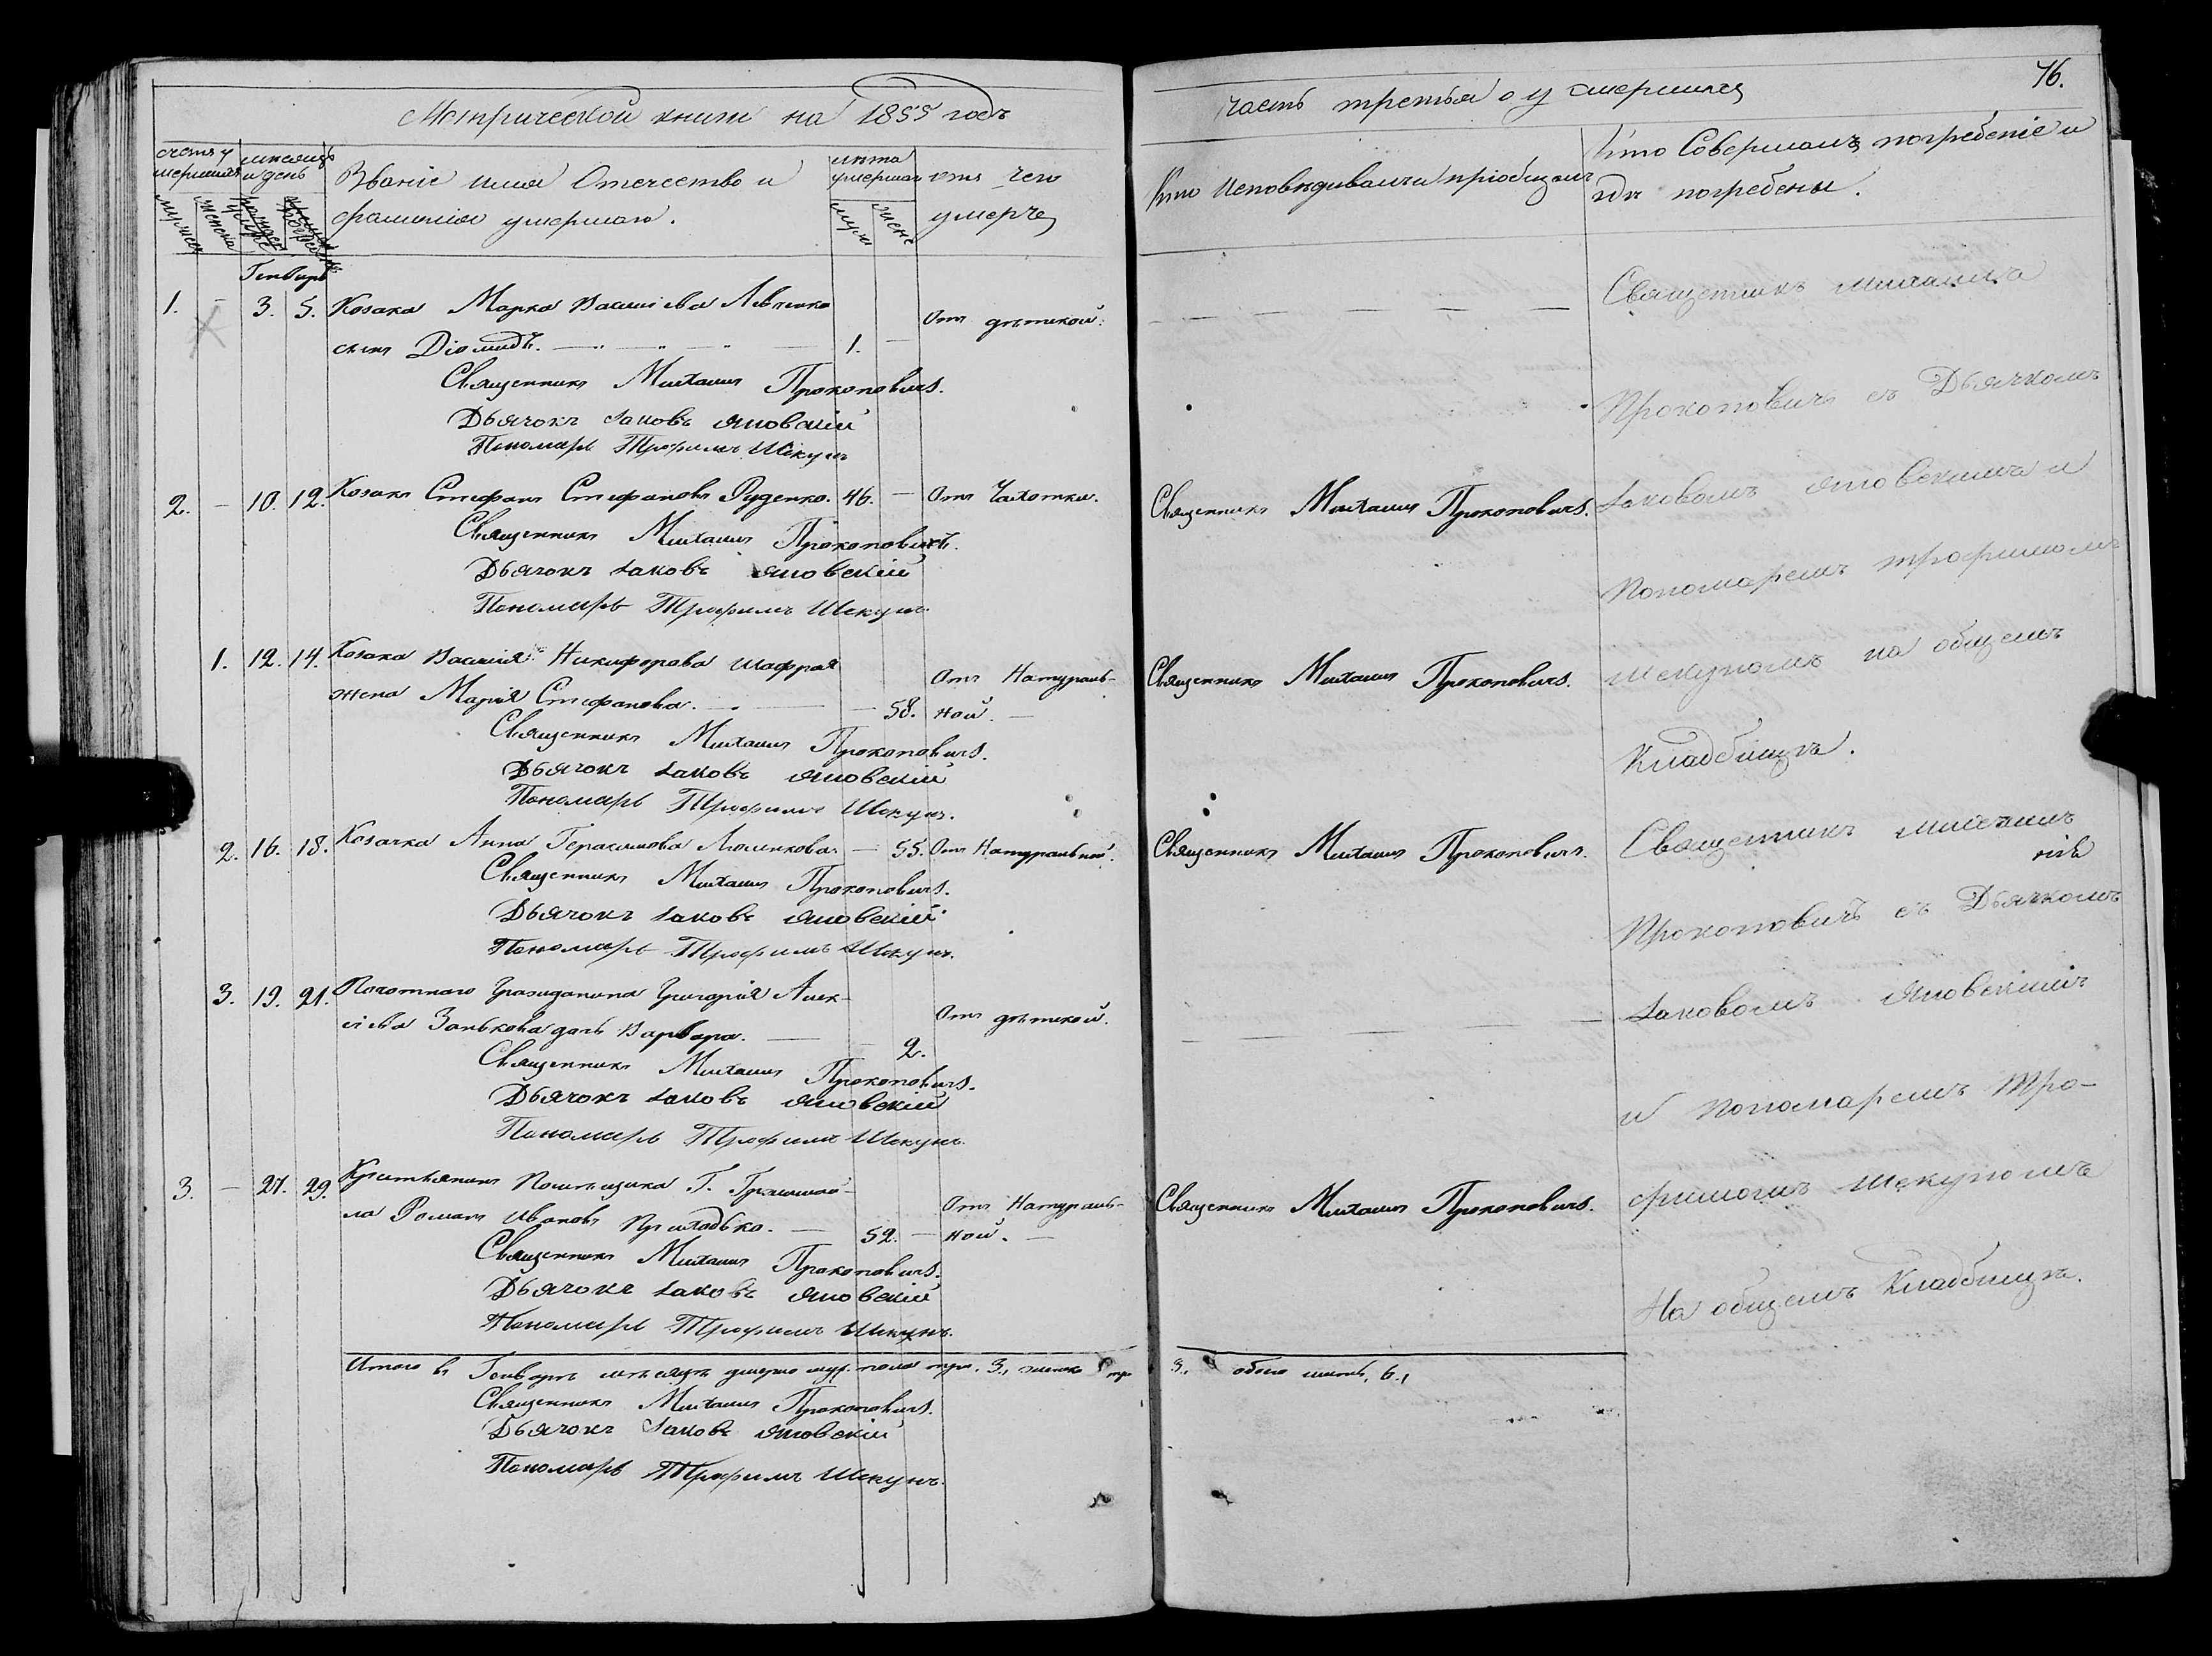 Метрической книги на 1855 годъ
счетъ умершихъ
мѣсяцъ и день
Званіе имя Отечество и
фамилія умершаго.
лѣта умершаго
отъ чего
умерче
мужеска
женска
муж
женс
Генваря
1. - 3. 5. Козака Марка Василіева Левченка
сынъ Діомидъ. 1. - Отъ дѣтской.
Священникъ Михаилъ Прокоповичъ.
Дьячокъ Іаковъ Яновскій
Пономарь Трофимъ Шекунъ
2. - 10. 12. Козакъ Стефанъ Стефановъ Руденко. 46. - Отъ Чахотки.
Священникъ Михаилъ Прокоповичъ.
Дьячокъ Іаковъ Яновскій
Пономарь Трофимъ Шекунъ.
1. 12. 14. Козака Василія Никифорова Шафрая
жена Марія Стефанова. - 58. Отъ Натураль-
ной.
Священникъ Михаилъ Прокоповичъ.
Дьячокъ Іаковъ Яновскій
Пономарь Трофимъ Шекунъ.
2. 16. 18. Козачка Анна Герасимова - 55. Отъ Натуральной.
Священникъ Михаилъ Прокоповичъ.
Дьячокъ Іаковъ Яновскій
Пономарь Трофимъ Шекунъ.
3. 19. 21. Почотнаго Гражданина Григорія Алек-
сіева Занькова дочь Варвара. - 2. Отъ дѣтской.
Священникъ Михаилъ Прокоповичъ.
Дьячокъ Іаковъ Яновскій
Пономарь Трофимъ Шекунъ.
3. - 27. 29. Крестьянинъ Помѣщика Г.
Романъ Ивановъ Приходько. 52. - Отъ Натураль-
ной.
Священникъ Михаилъ Прокоповичъ.
Дьячокъ Іаковъ Яновскій
Пономарь Трофимъ Шекунъ.
Итого въ Генварѣ мѣсяцѣ умерло муж. пола три. 3., женска три
Священникъ Михаилъ Прокоповичъ.
Дьячокъ Іаковъ Яновскій
Пономарь Трофимъ Шекунъ.
часть третья о умершихъ
76.
Кто Исповѣдивалъ и пріобщалъ
Кто Совершалъ погребеніе и
гдѣ погребены.
Священникъ Михаилъ
Прокоповичъ съ Дьячкомъ
Священникъ Михаилъ Прокоповичъ.
Іаковомъ Яновскимъ и
Пономаремъ Трофимомъ
Священникъ Михаилъ Прокоповичъ.
Шекуномъ на общемъ
Кладбищѣ.
Священникъ Михаилъ Прокоповичъ.
Священникъ Михаилъ
Прокоповичъ съ Дьячкомъ
Іаковомъ Яновскимъ
и Пономаремъ Тро-
Священникъ Михаилъ Прокоповичъ.
фимомъ Шекуномъ
На общемъ Кладбищѣ.
3., обоего шесть, 6.,